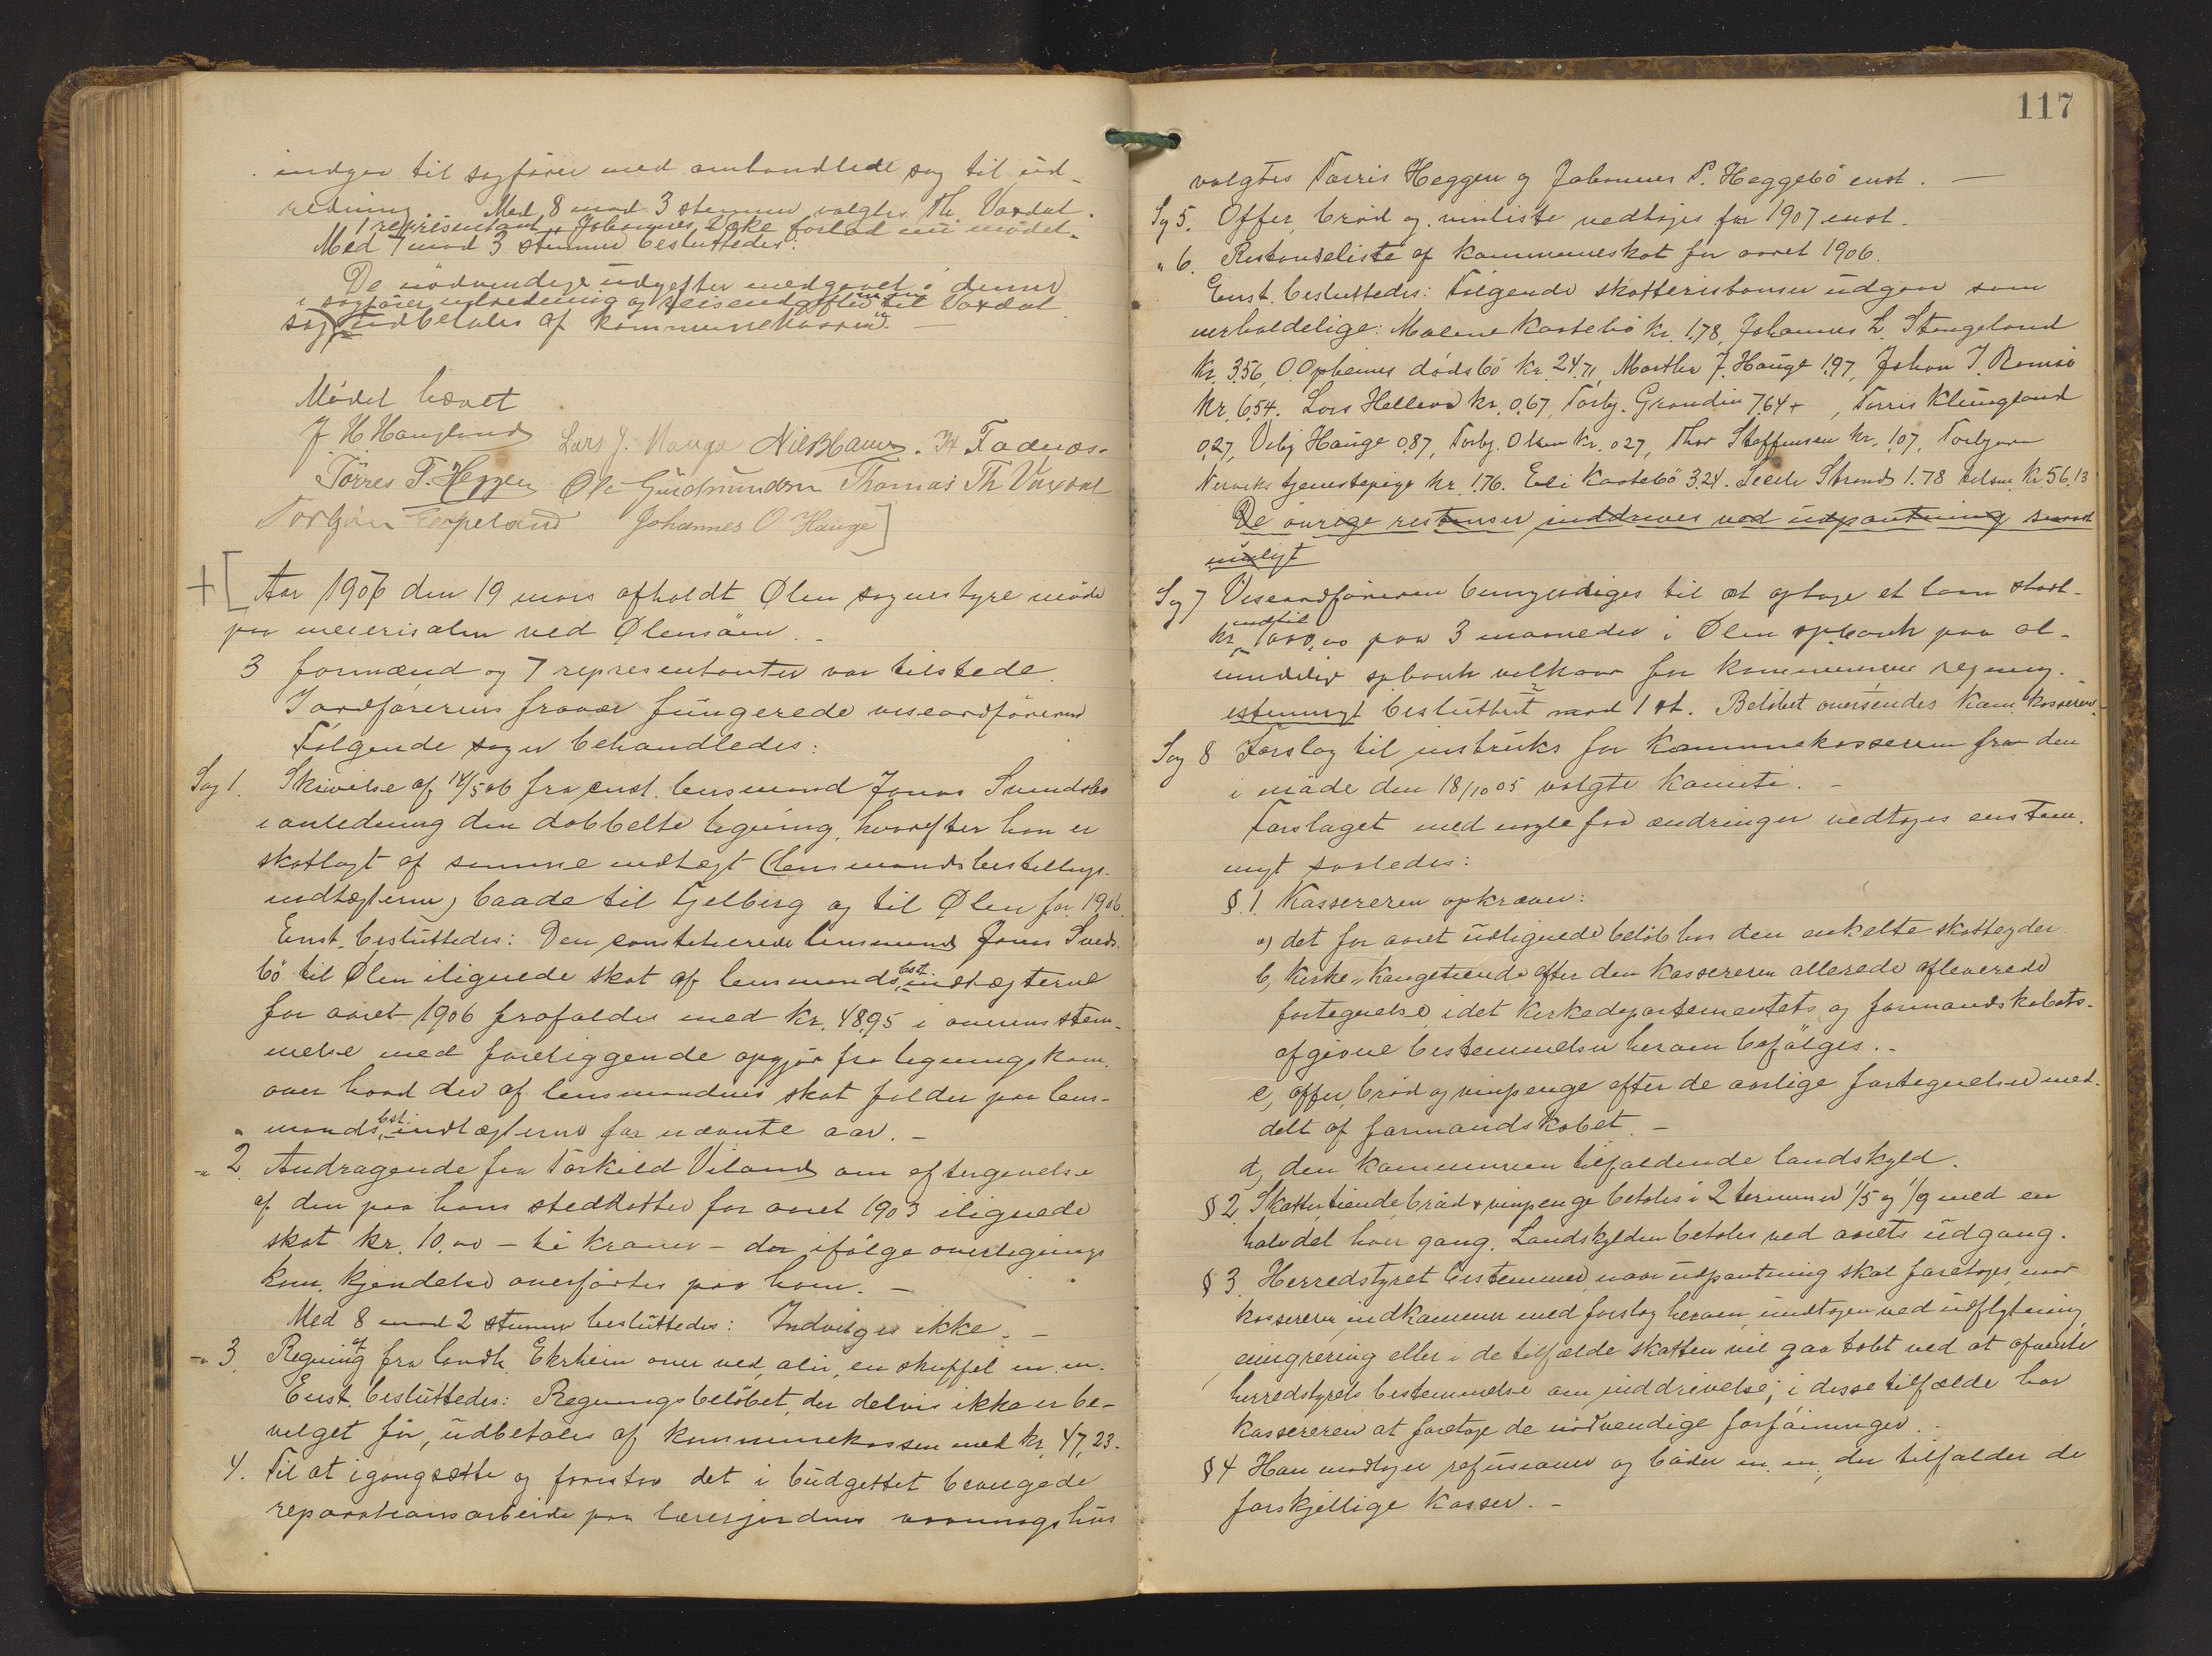 indgaa til sagfører med omhandlede sag til ud-
redning. Med 8 mod 3 stemmer valgtes Th. Vaxdal.
1 repræsentant, Johannes Eike forlod nu mødet.
Med 7 mod 3 stemmer besluttedes:
De nødvendige udgifter medgaaet i denne
i sagfører, udredning og reiseudgifter m.m. til Vaxdal
sag udbetales af kommunekassen. —
Mødet hævet
J H Hauglund Lars J. Hauge Nils Hauge. H Fadnæs.
Tørres T. Heggen Ole Gudmundsen Thomas Th Vaxdal
Torbjørn Eerpeland Johannes O Hauge]
+[ Aar 1907 den 19 mars afholdt Ølen sognestyre møde
paa meierisalen ved Ølensøen. -
3 formænd og 7 representanter var tilstede.
I ordførerens fravær fungerede viseordføreren
Følgende sager behandledes:
Sag 1. Skrivelse af 14/5 06 fra const. lensmand Jonas Svendsbø
i anledning den dobbelte ligning, hvorefter han er
skatlagt af samme indtægt (lensmandsbestillings-
indtægterne) baade til Fjelberg og til Ølen for 1906.
Enst. besluttedes: Den constituerede lensmand Jonas Svends-
bø til Ølen ilignede skat af lensmandsbest.indtægterne
for aaret 1906 frafaldes med kr. 48,95 i overensstem-
melse med foreliggende opgjør fra ligningskom.
over hvad der af lensmandens skat falder paa lens-
mandsbest.indtægterne for nævnte aar. -
" 2. Andragende fra Torkild Viland om eftergivelse
af den paa hans steddatter for aaret 1903 ilignede
skat kr. 10,00 - ti kroner - der ifølge overlignings
kom. kjendelse overførtes paa ham. -
Med 8 mod 2 stemmer besluttedes: Indvilges ikke. -
" 3. Regning af fra landh. Ekrheim over ved, olie, en skuffel m.m.
Enst. besluttedes: Regningsbeløbet, der delvis ikke er be-
vilget før, udbetales af kommunekassen med kr. 47,23.
4. Til at igangsætte og forestaa det i budgettet bevilgede
reparationsarbeide paa lærerjordens vaaningshus
117
valgtes Tørris Heggen og Johannes P. Heggebø enst. —
Sag 5. Offer, brød og vinliste vedtoges for 1907 enst.
" 6. Restanseliste af kommuneskat for aaret 1906.
Enst. besluttedes: Følgende skatterestanser udgaar som
uerholdelige: Malene Kaatebø kr. 1.78, Johannes L. Stangeland
kr. 3.56, O. Opheims dødsbo kr. 24.71, Marthe J. Hauge 1.97, Johan J. Romsø
kr. 6.54. Lars Hellerø kr. 0.67, Torbj. Grandin 7.64 + , Tørris Klungland
0.27, Viby Hauge 0.87, Torbj. Olsen kr. 0.27, Thor Steffensen kr. 1.07, Torbjørn
Nerviks tjenestepige kr. 1.76. Eli Kaatebø 3.24. Secele Strand 1.78 tilsm. kr. 56.13
De øvrige restanser inddrives ved udpantning snarest
muligt
Sag 7 Viseordføreren bemyndiges til at optage et laan stort
indtil
kr. 1000,00 paa 3 maaneder i Ølen spbank paa al-
mindelig spbank vilkaar for kommunens regning.
estemmigt besluttet mod 1 st. Beløbet oversendes kom. kasserer.
Sag 8 Forslag til instruks for kommunekassereren fra den
i møde den 18/10 05 valgte komite. -
Forslaget med nogle faa ændringer vedtoges enstem-
migt saaledes:
§. 1. Kassereren opkræver:
a) det for aaret udlignede beløb hos den enkelte skatteyder.
b, kirke- kongetiende efter den kassereren allerede afleverede
fortegnelse, idet kirkedepartementets og formandskabets
afgivne bestemmelser herom befølges. -
c, offer, brød og vinpenge efter de aarlige fortegnelser med-
delt af formandskabet. -
d, den kommunen tilfaldende landskyld.
§ 2. Skatter, tiende, brød & vinpenge betales i 2 terminer 1/5 og 1/9 med en
halvdel hver gang. Landskylden betales ved aarets udgang.
§ 3. Herredstyret bestemmer, naar udpantning skal foretages, naar
kassereren indkommer med forslag herom, undtagen ved udflytning,
emigrering eller i de tilfælde skatten vil gaa tabt ved at afvente
herredstyrets bestemmelse om inddrivelse; i disse tilfælde har
kassereren at foretage de nødvendige forføininger. -
§ 4 Han modtager refusioner og bøder m.m., der tilfalder de
forskjellige kasser. -